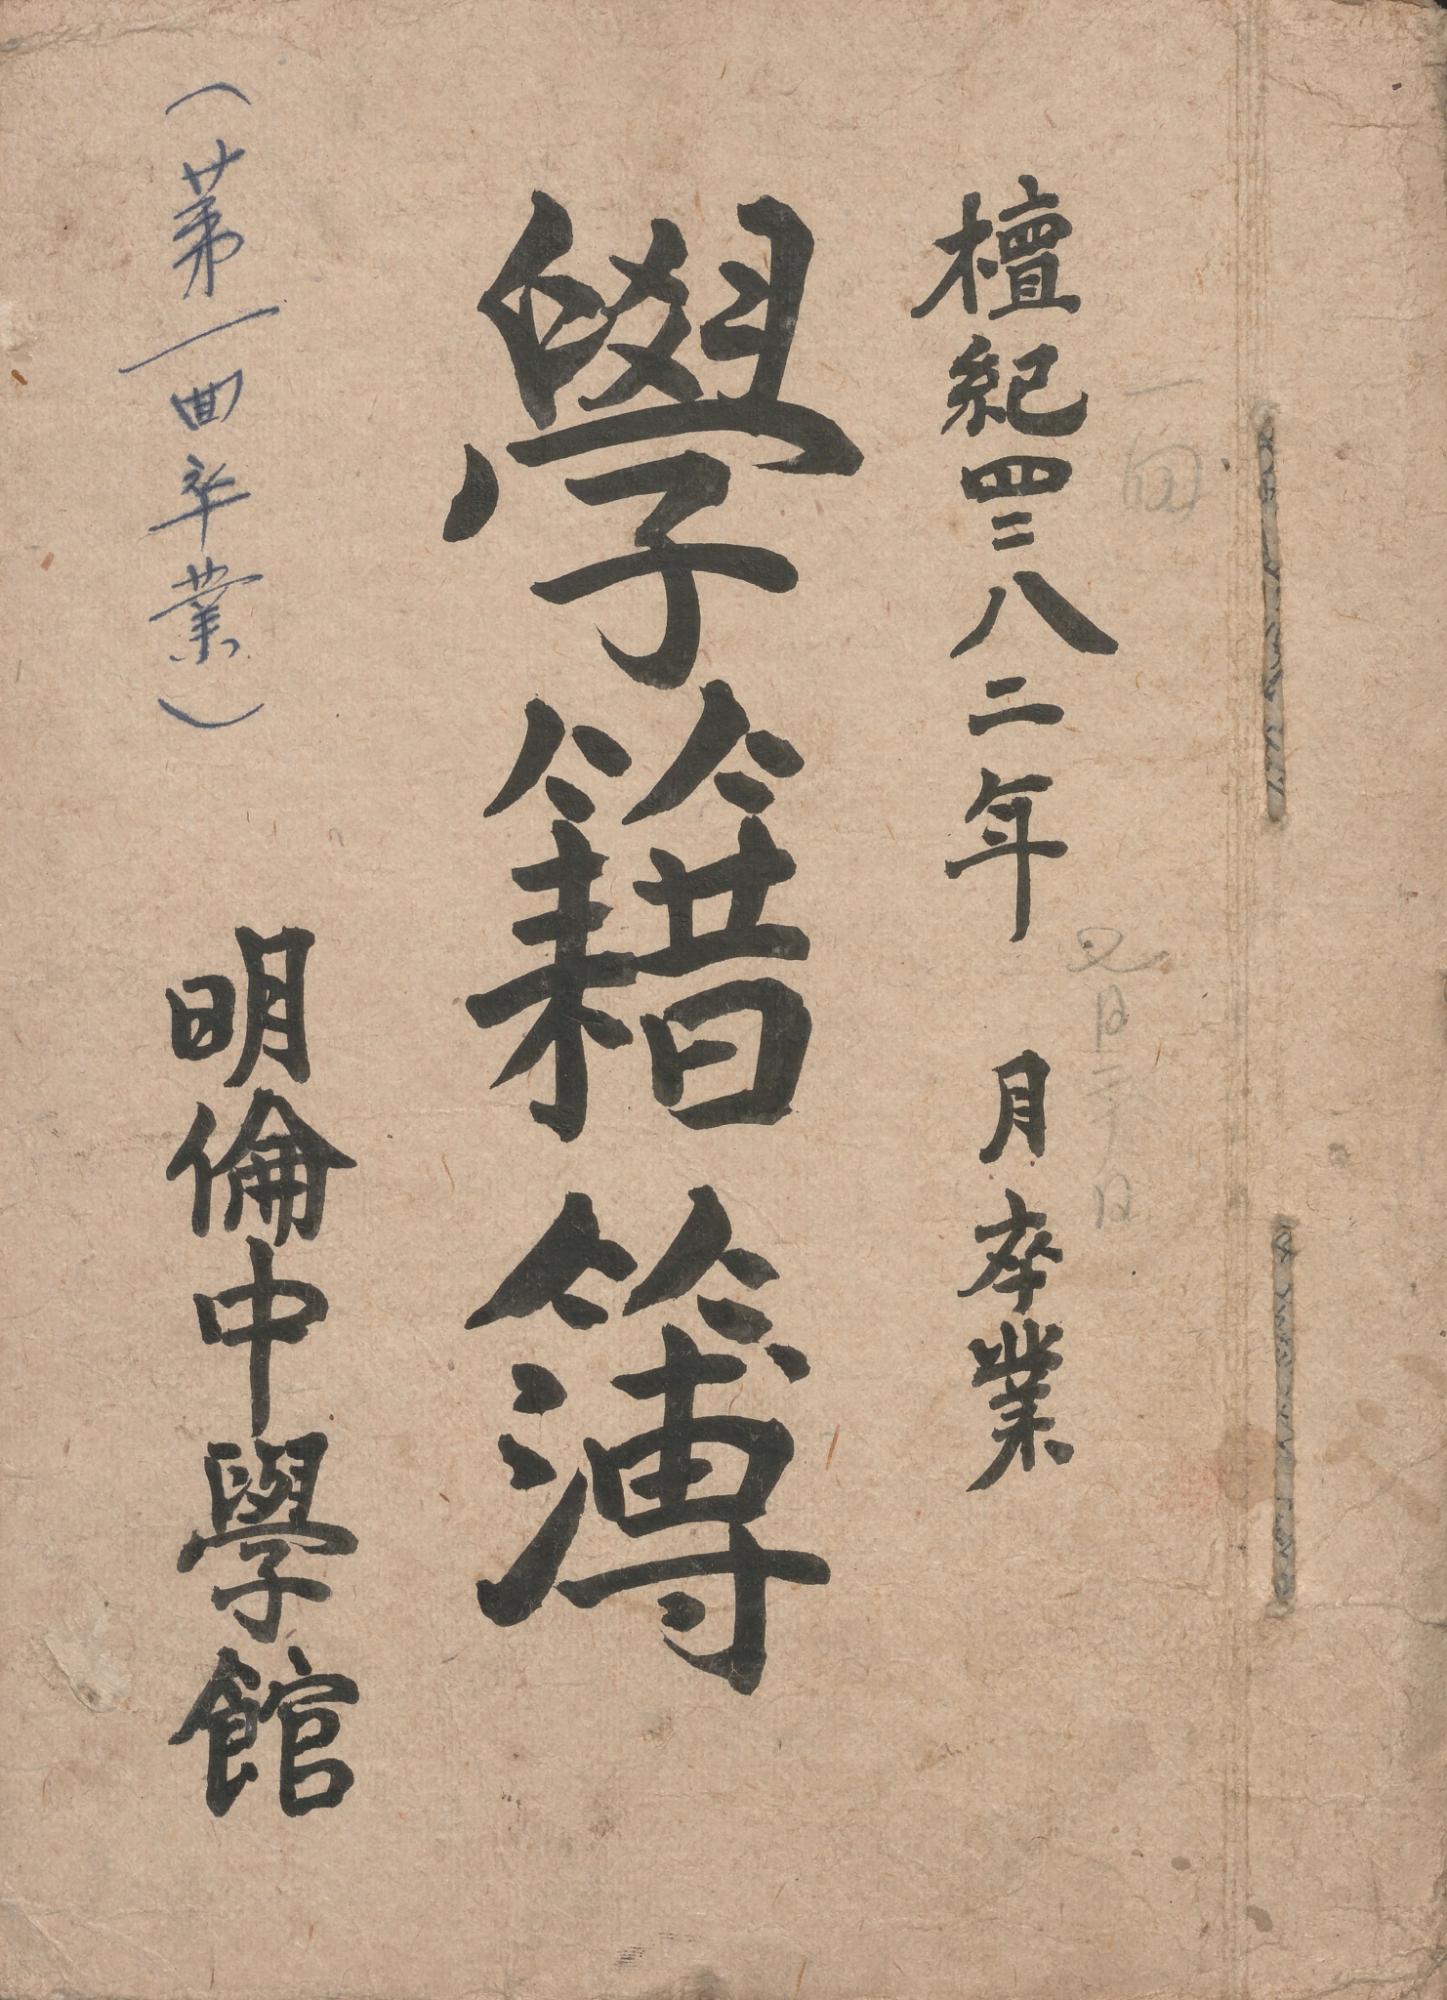 一回
檀紀四二八二年 月卒業
七月二六日
學籍簿
(第一回卒業)
明倫中學館